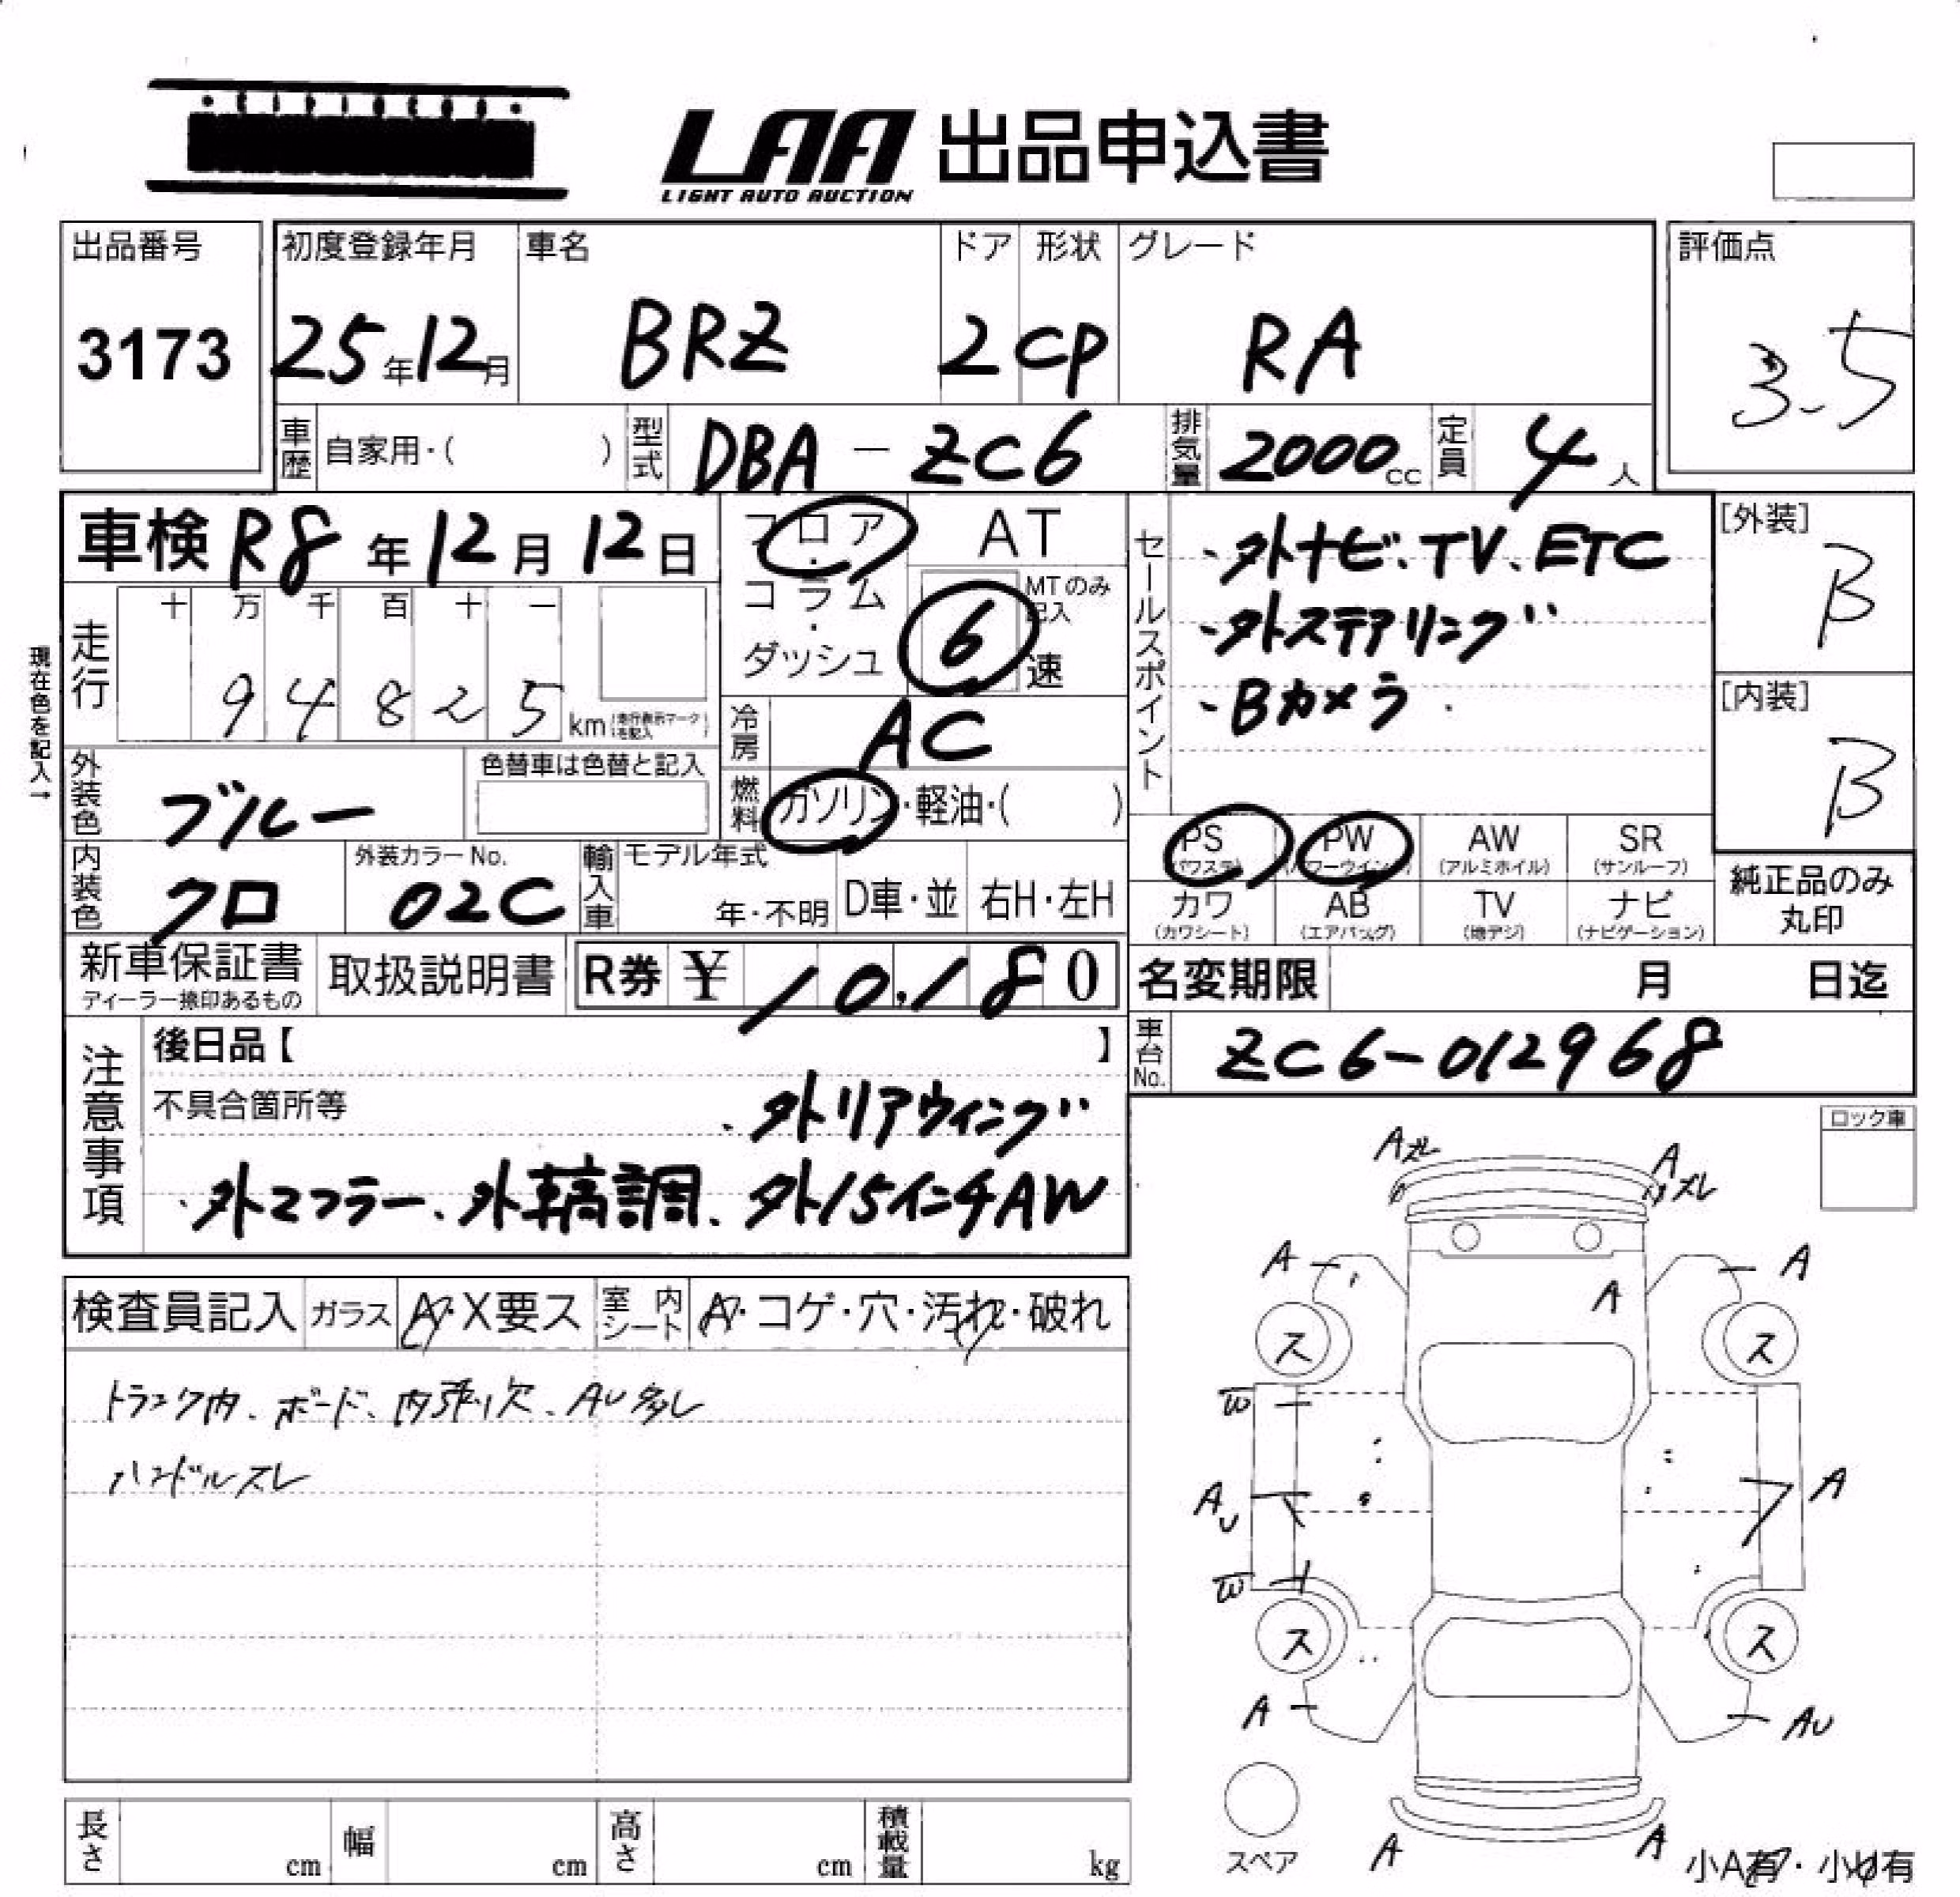 LAA 出品申込書
LIGHT AUTO AUCTION
出品番号 初度登録年月 車名 ドア 形状 グレード 評価点
3173 25年12月 BRZ 2 CP RA 3.5
車歴 自家用・( ) 型式 DBA-ZC6 排気量 2000cc 定員 4人
車検 R8年12月12日
フロア・コラム・ダッシュ
AT
6 MTのみ記入
速
走行 十 万 千 百 十 一
94825 km (走行表示マークを記入)
現在色を記入→
外装色 ブルー 色替車は色替と記入
冷房 AC
燃料 ガソリン・軽油・( )
内装色 クロ 外装カラーNo. 02C
輸入車 モデル年式 年・不明 D車・並 右H・左H
セールスポイント
・外ナビ、TV、ETC
・外ステアリング
・Bカメラ
[外装] B
[内装] B
PS (パワステ) PW (パワーウインド) AW (アルミホイル) SR (サンルーフ)
カワ (カワシート) AB (エアバッグ) TV (地デジ) ナビ (ナビゲーション)
純正品のみ
丸印
新車保証書 ディーラー捺印あるもの 取扱説明書 R券 ¥ 10,180
名変期限 月 日迄
車台No. ZC6-012968
注意事項
後日品【 】
不具合箇所等 ・外リアウィング
・外マフラー、外車高調、外15インチAW
検査員記入 ガラス A・X要ス 室内シート A・コゲ・穴・汚れ・破れ
トランク内、ボード、内張り欠、AU多し
ハンドルスレ
ロック車
Aズレ A ズレ
A A A
ス ス
W
AU A
W
ス ス
A AU
スペア A A 小A有・小U有
長さ cm 幅 cm 高さ cm 積載量 kg